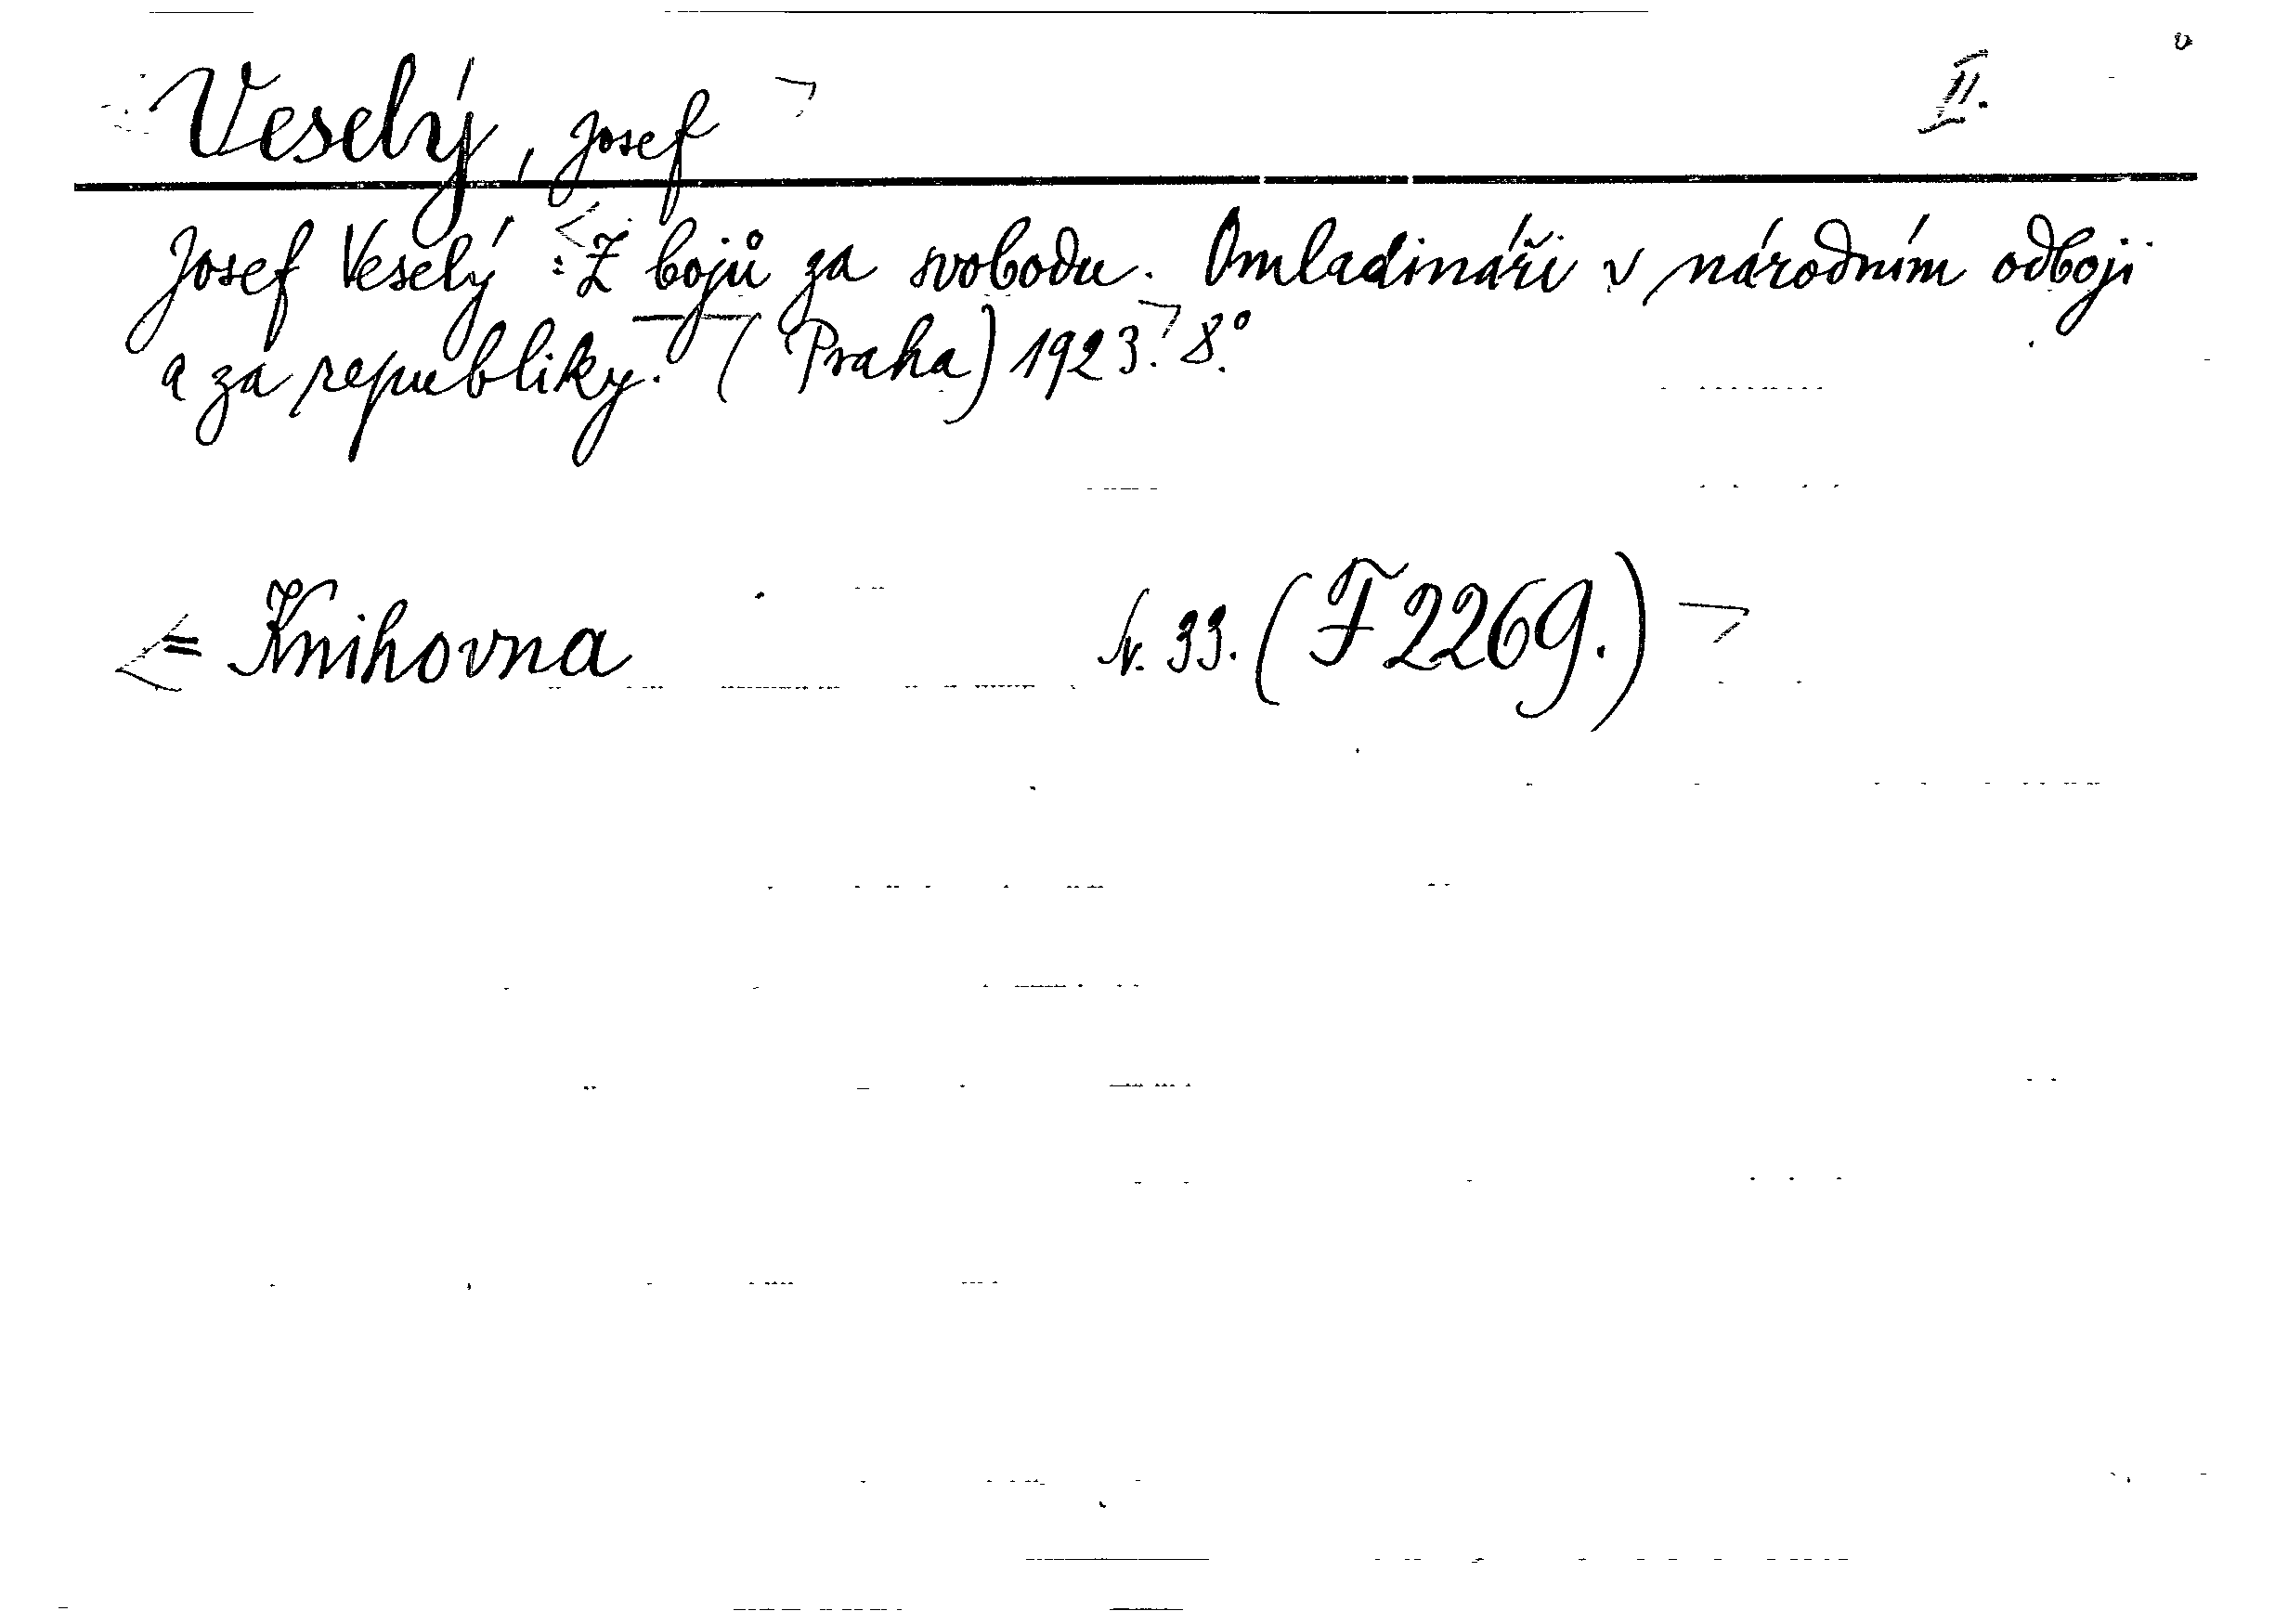 Veselý, Josef II.
Josef Veselý: Z bojů za svobodu. Omladináři v národním odboji
a za republiky. (Praha) 1923. 8°.
= Knihovna N. 33. (F 2269.)